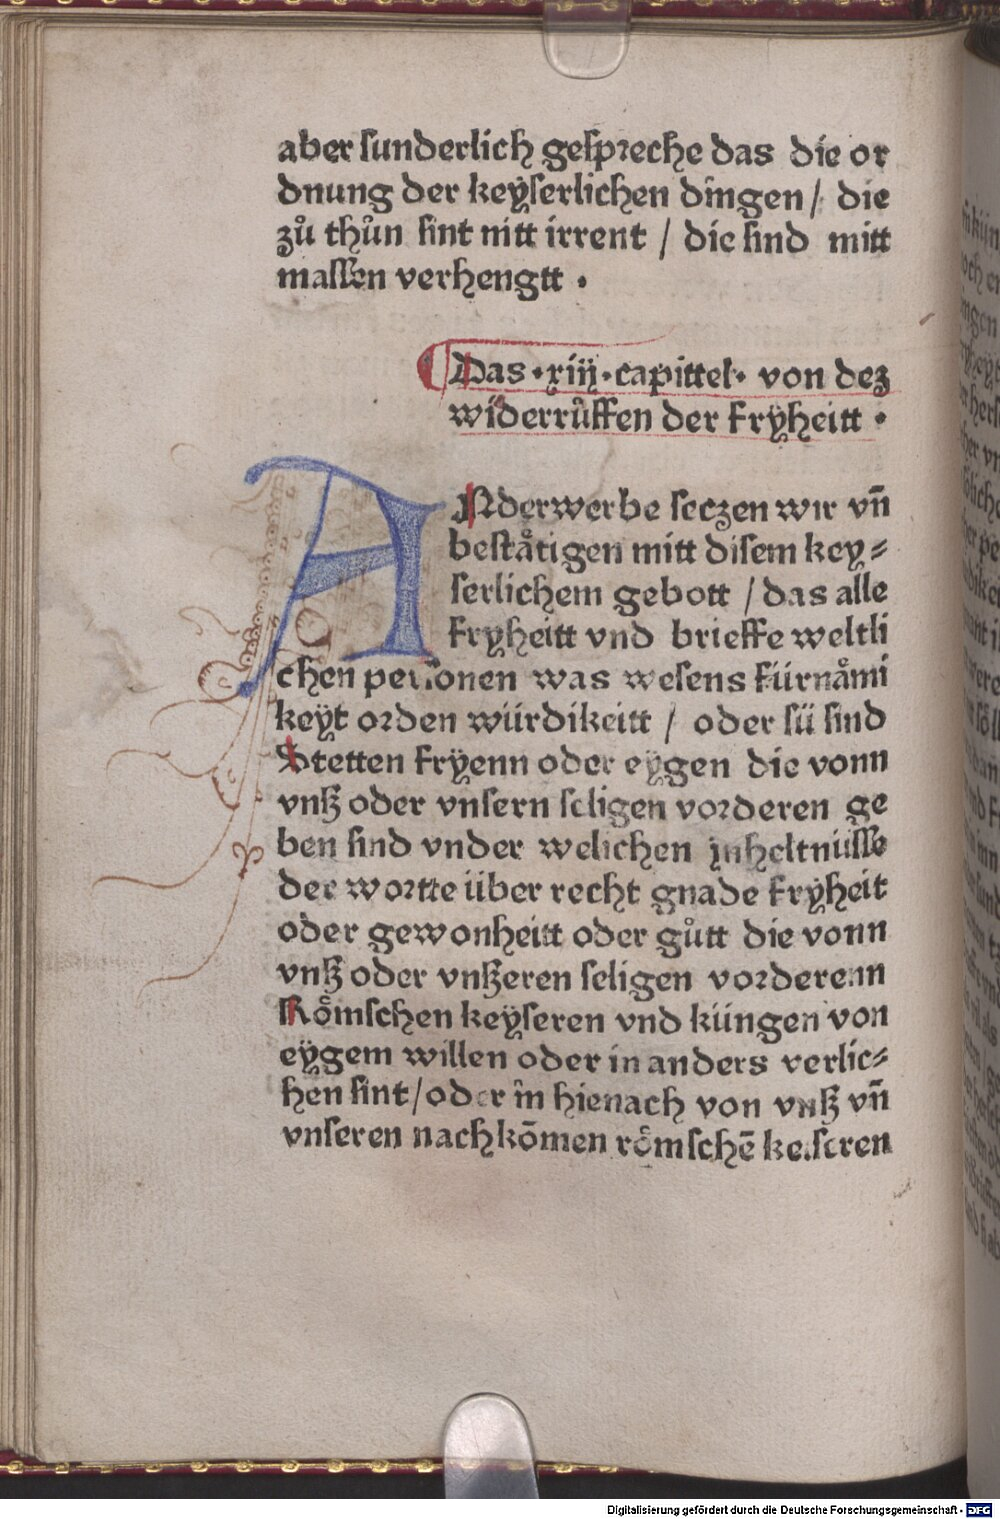 aber sunderlich gespreche das die or
dnung der keyserlichen dingen / die
zů thůn sint nitt irrent / die sind mitt
massen verhengtt .
Das .xiij. capittel. von dez
widerrůffen der Fryheitt .
ANderwerbe seczen wir vn̄
bestätigen mitt disem key=
serlichem gebott / das alle
Fryheitt vnd brieffe weltli
chen personen was wesens fürnämi
keyt orden würdikeitt / oder sü sind
Stetten fryenn oder eygen die vonn
vnß oder vnsern seligen vorderen ge
ben sind vnder welichen inheltnüsse
der wortte über recht gnade fryheit
oder gewonheitt oder gůtt die vonn
vnß oder vnßeren seligen vorderenn
Römschen keyseren vnd küngen von
eygem willen oder in anders verlic=
hen sint / oder in hienach von vnß vn̄
vnseren nachkōmen römschē keiseren
Digitalisierung gefördert durch die Deutsche Forschungsgemeinschaft - DFG